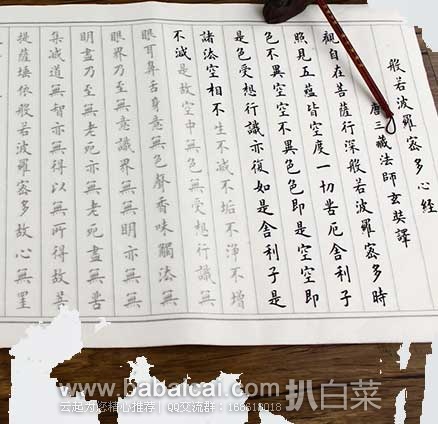 般若波羅蜜多心經
唐三藏法師玄奘譯
觀自在菩薩行深般若波羅蜜多時
照見五蘊皆空度一切苦厄舍利子
色不異空空不異色色即是空空即
是色受想行識亦復如是舍利子是
諸法空相不生不滅不垢不淨不增
不減是故空中無色無受想行識無
眼耳鼻舌身意無色聲香味觸法無
眼界乃至無意識界無無明亦無無
明盡乃至無老死亦無老死盡無苦
集滅道無智亦無得以無所得故菩
提薩埵依般若波羅蜜多故心無罣
www.babaicai.com 扒白菜
云起为您精心推荐| QQ交流群: